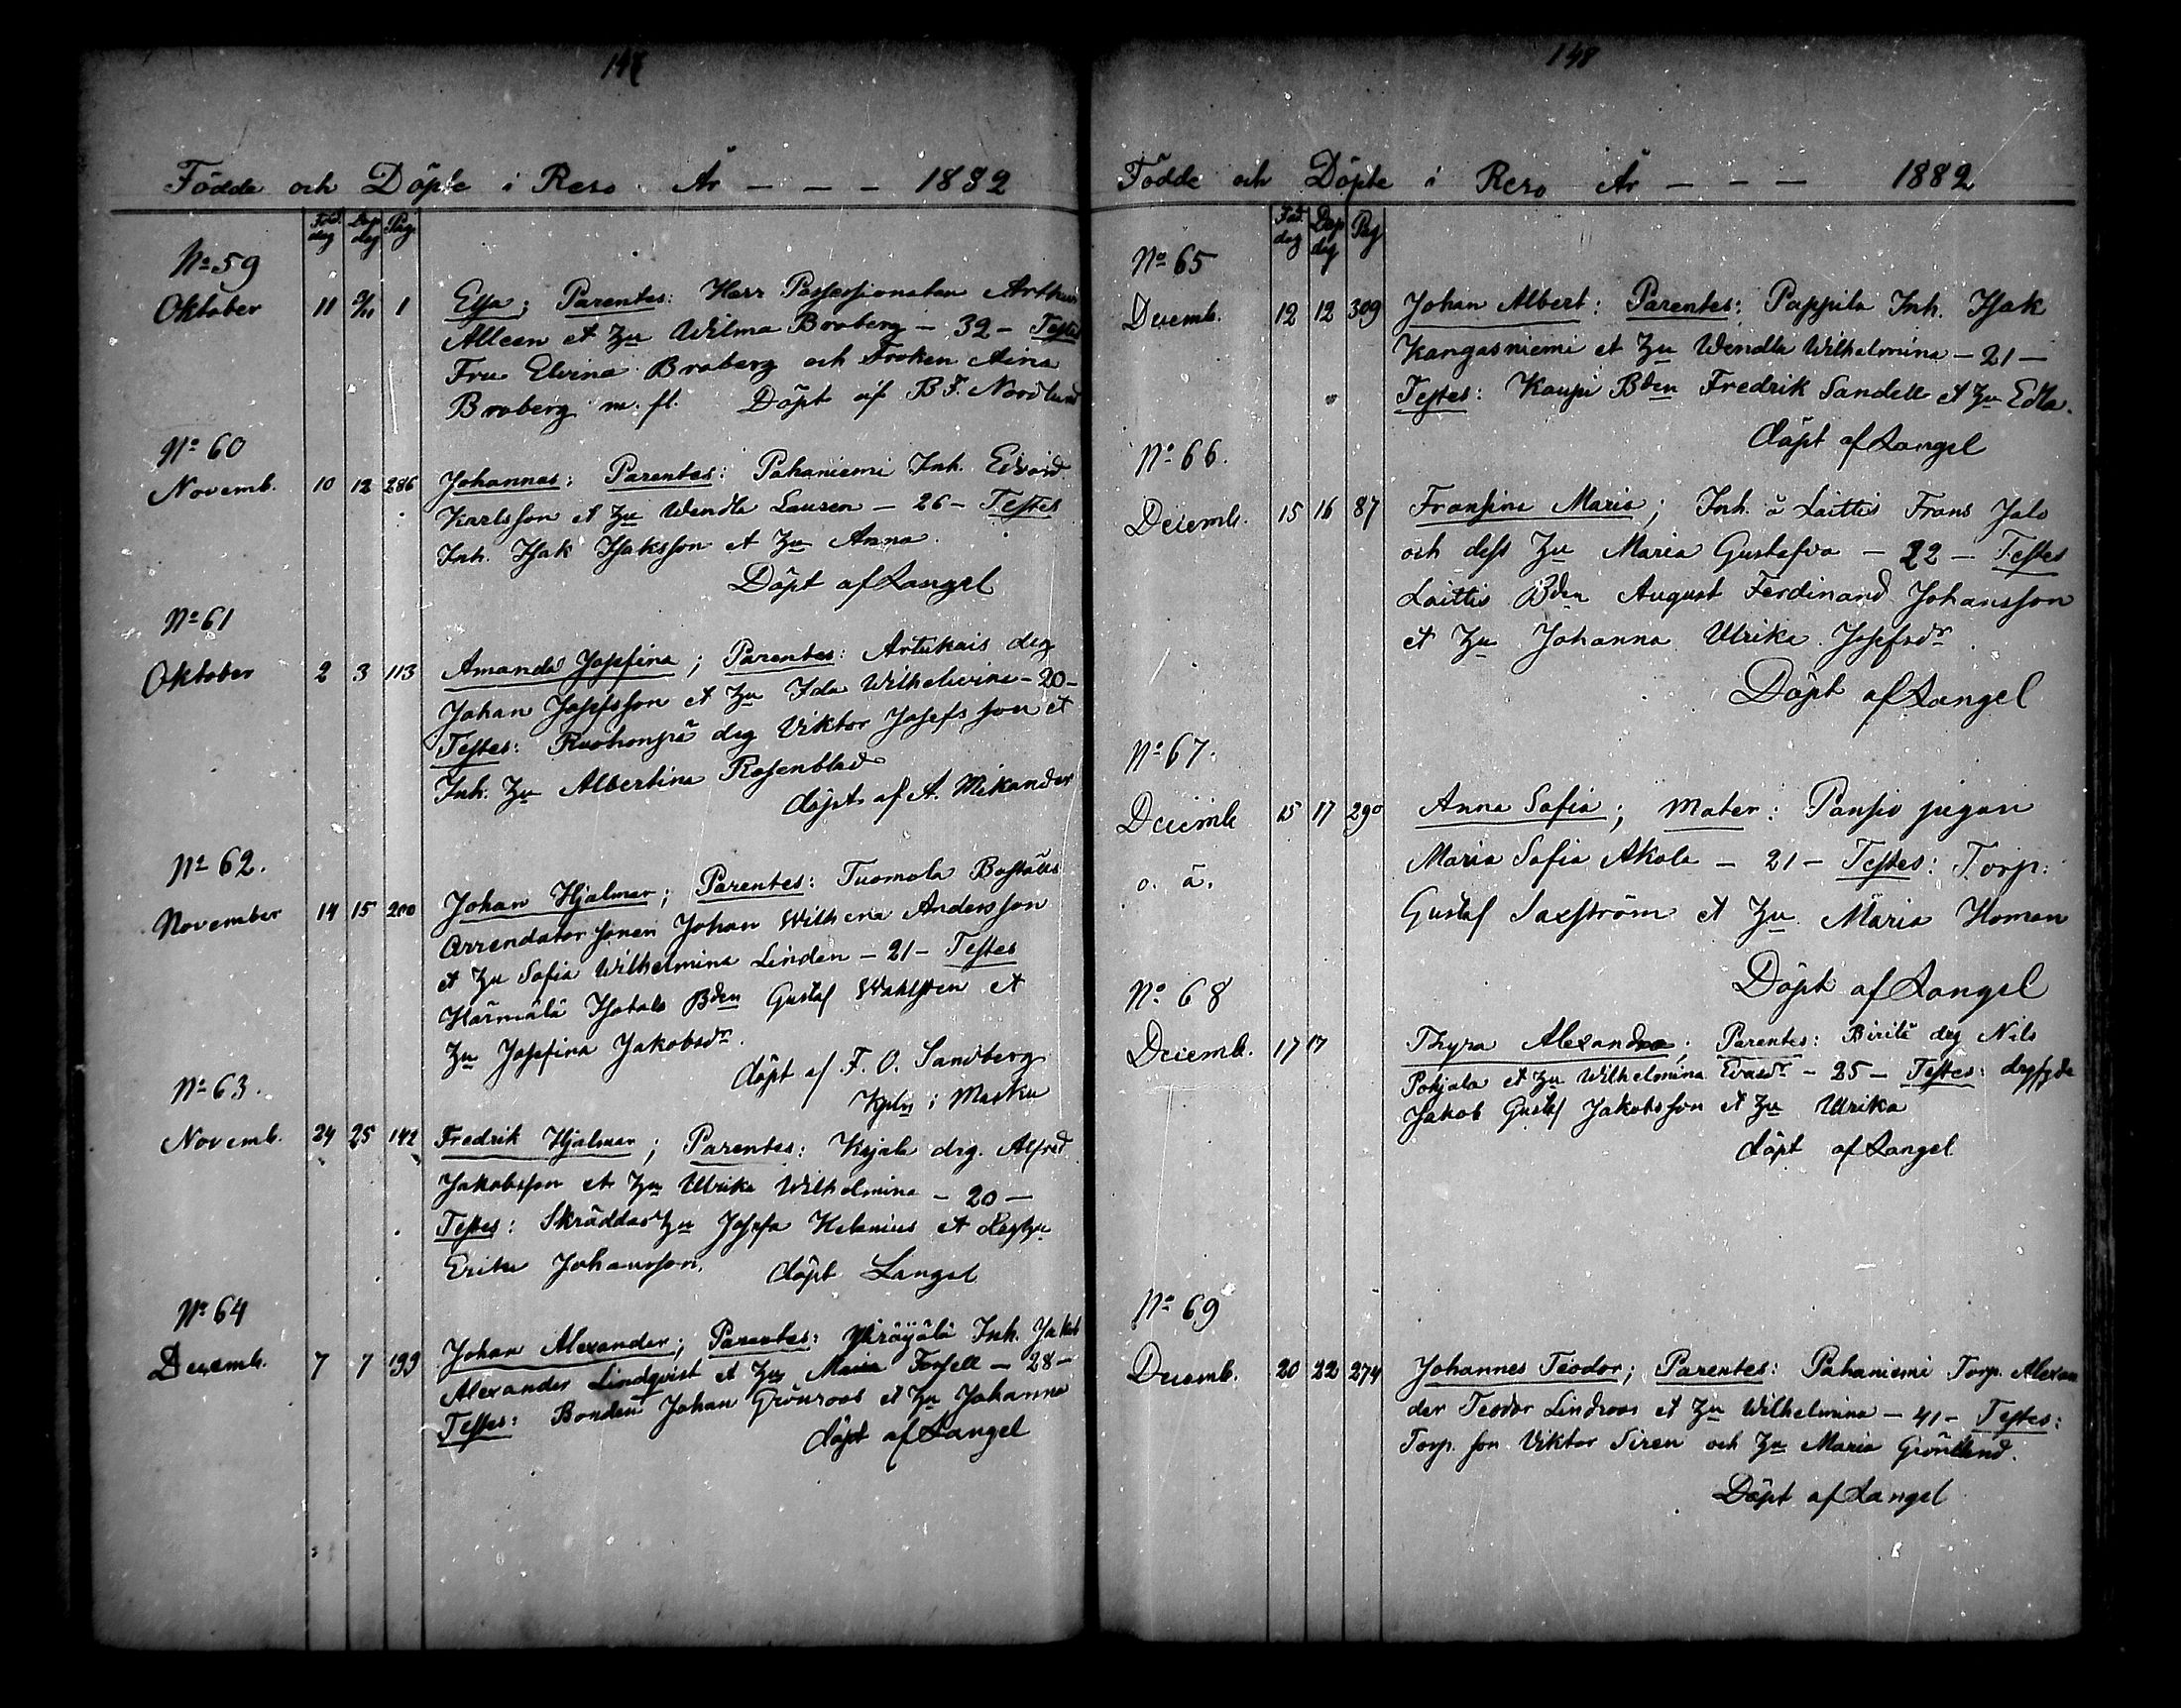 147
Födde och Döpte i Reso År - - - 1882
Föd. dag Döp dag Pag.
No 59
Oktober 11 5/11 1 Elsa; Parentes: Herr Possessionaten Arthur
Alleen et Hu Wilma Broberg - 32 - Testes
Fru Elvina Broberg och Froken Aina
Broberg m. fl. Döpt af B F. Nordlund
No 60
Novemb. 10 12 286 Johannes; Parentes: Pahaniemi Inh. Edvard
Karlsson et Hu Wendla Lauren - 26 - Testes
Inh. Isak Isaksson et Hu Anna.
Döpt af Langel
No 61
Oktober 2 3 113 Amanda Josefina; Parentes: Artukais drg
Johan Josefsson et Hu Ida Wilhelmina - 20 -
Testes: Ruohonpä drg Viktor Josefsson et
Inh. Hu Albertina Rosenblad
döpt af A. Mikander
No 62.
November 14 15 200 Johan Hjalmar; Parentes: Tuomola Boställs
Arrendator sonen Johan Wilhem Andersson
et Hu Sofia Wilhelmina Linden - 21 - Testes
Härmälä Isotalo Bden Gustaf Wahlsten et
Hu Josefina Jakobsdr.
döpt af F. O. Sandberg
Kpln i Masku
No 63.
Novemb. 24 25 142 Fredrik Hjalmar; Parentes: drg. Alfred
Jakobsson et Hu Ulrika Wilhelmina - 20 -
Testes: Skräddar Hu Josefa Helenius et
Johansson. döpt Langel
No 64
Decemb. 7 7 199 Johan Alexander; Parentes: Inh. Jakob
Alexander Lindqvist et Hu Maria Forsell - 28 -
Testes: Bonden Johan Grönroos et Hu Johanna
döpt af Langel
148
Födde och Döpte i Reso År - - - 1882
Föd. dag Döp dag Pag
No 65
Decemb. 12 12 309 Johan Albert: Parentes: Pappila Inh. Isak
Kangasniemi et Hu Wendla Wilhelmina - 21 -
Testes: Kaupi Bden Fredrik Sandell et Hu Edla.
döpt af Langel
No 66.
Decemb. 15 16 87 Fransina Maria; Inh. å Laittis Frans Jalo
och dess Hu Maria Gustafva - 22 - Testes
Laittis Bden August Ferdinand Johansson
et Hu Johanna Ulrika Josefsdr.
Döpt af Langel
No 67.
Decemb 15 17 290 Anna Sofia; Mater: Pansio pigan
o. ä. Maria Sofia Akola - 21 - Testes: Torp.
Gustaf Saxström et Hu Maria Homan
Döpt af Langel
No 68
Decemb. 17 17 Thyra Alexandra; Parentes: drg Nils
Pohjala et Hu Wilhelmina Evasdr - 25 - Testes:
Jakob Gustaf Jakobsson et Hu Ulrika
döpt af Langel
No 69
Decemb. 20 22 274 Johannes Teodor; Parentes: Pahaniemi Torp. Alexan
der Teodor Lindroos et Hu Wilhelmina - 41 - Testes:
Torp. son Viktor Siren och Hu Maria Grönlund.
Döpt af Langel